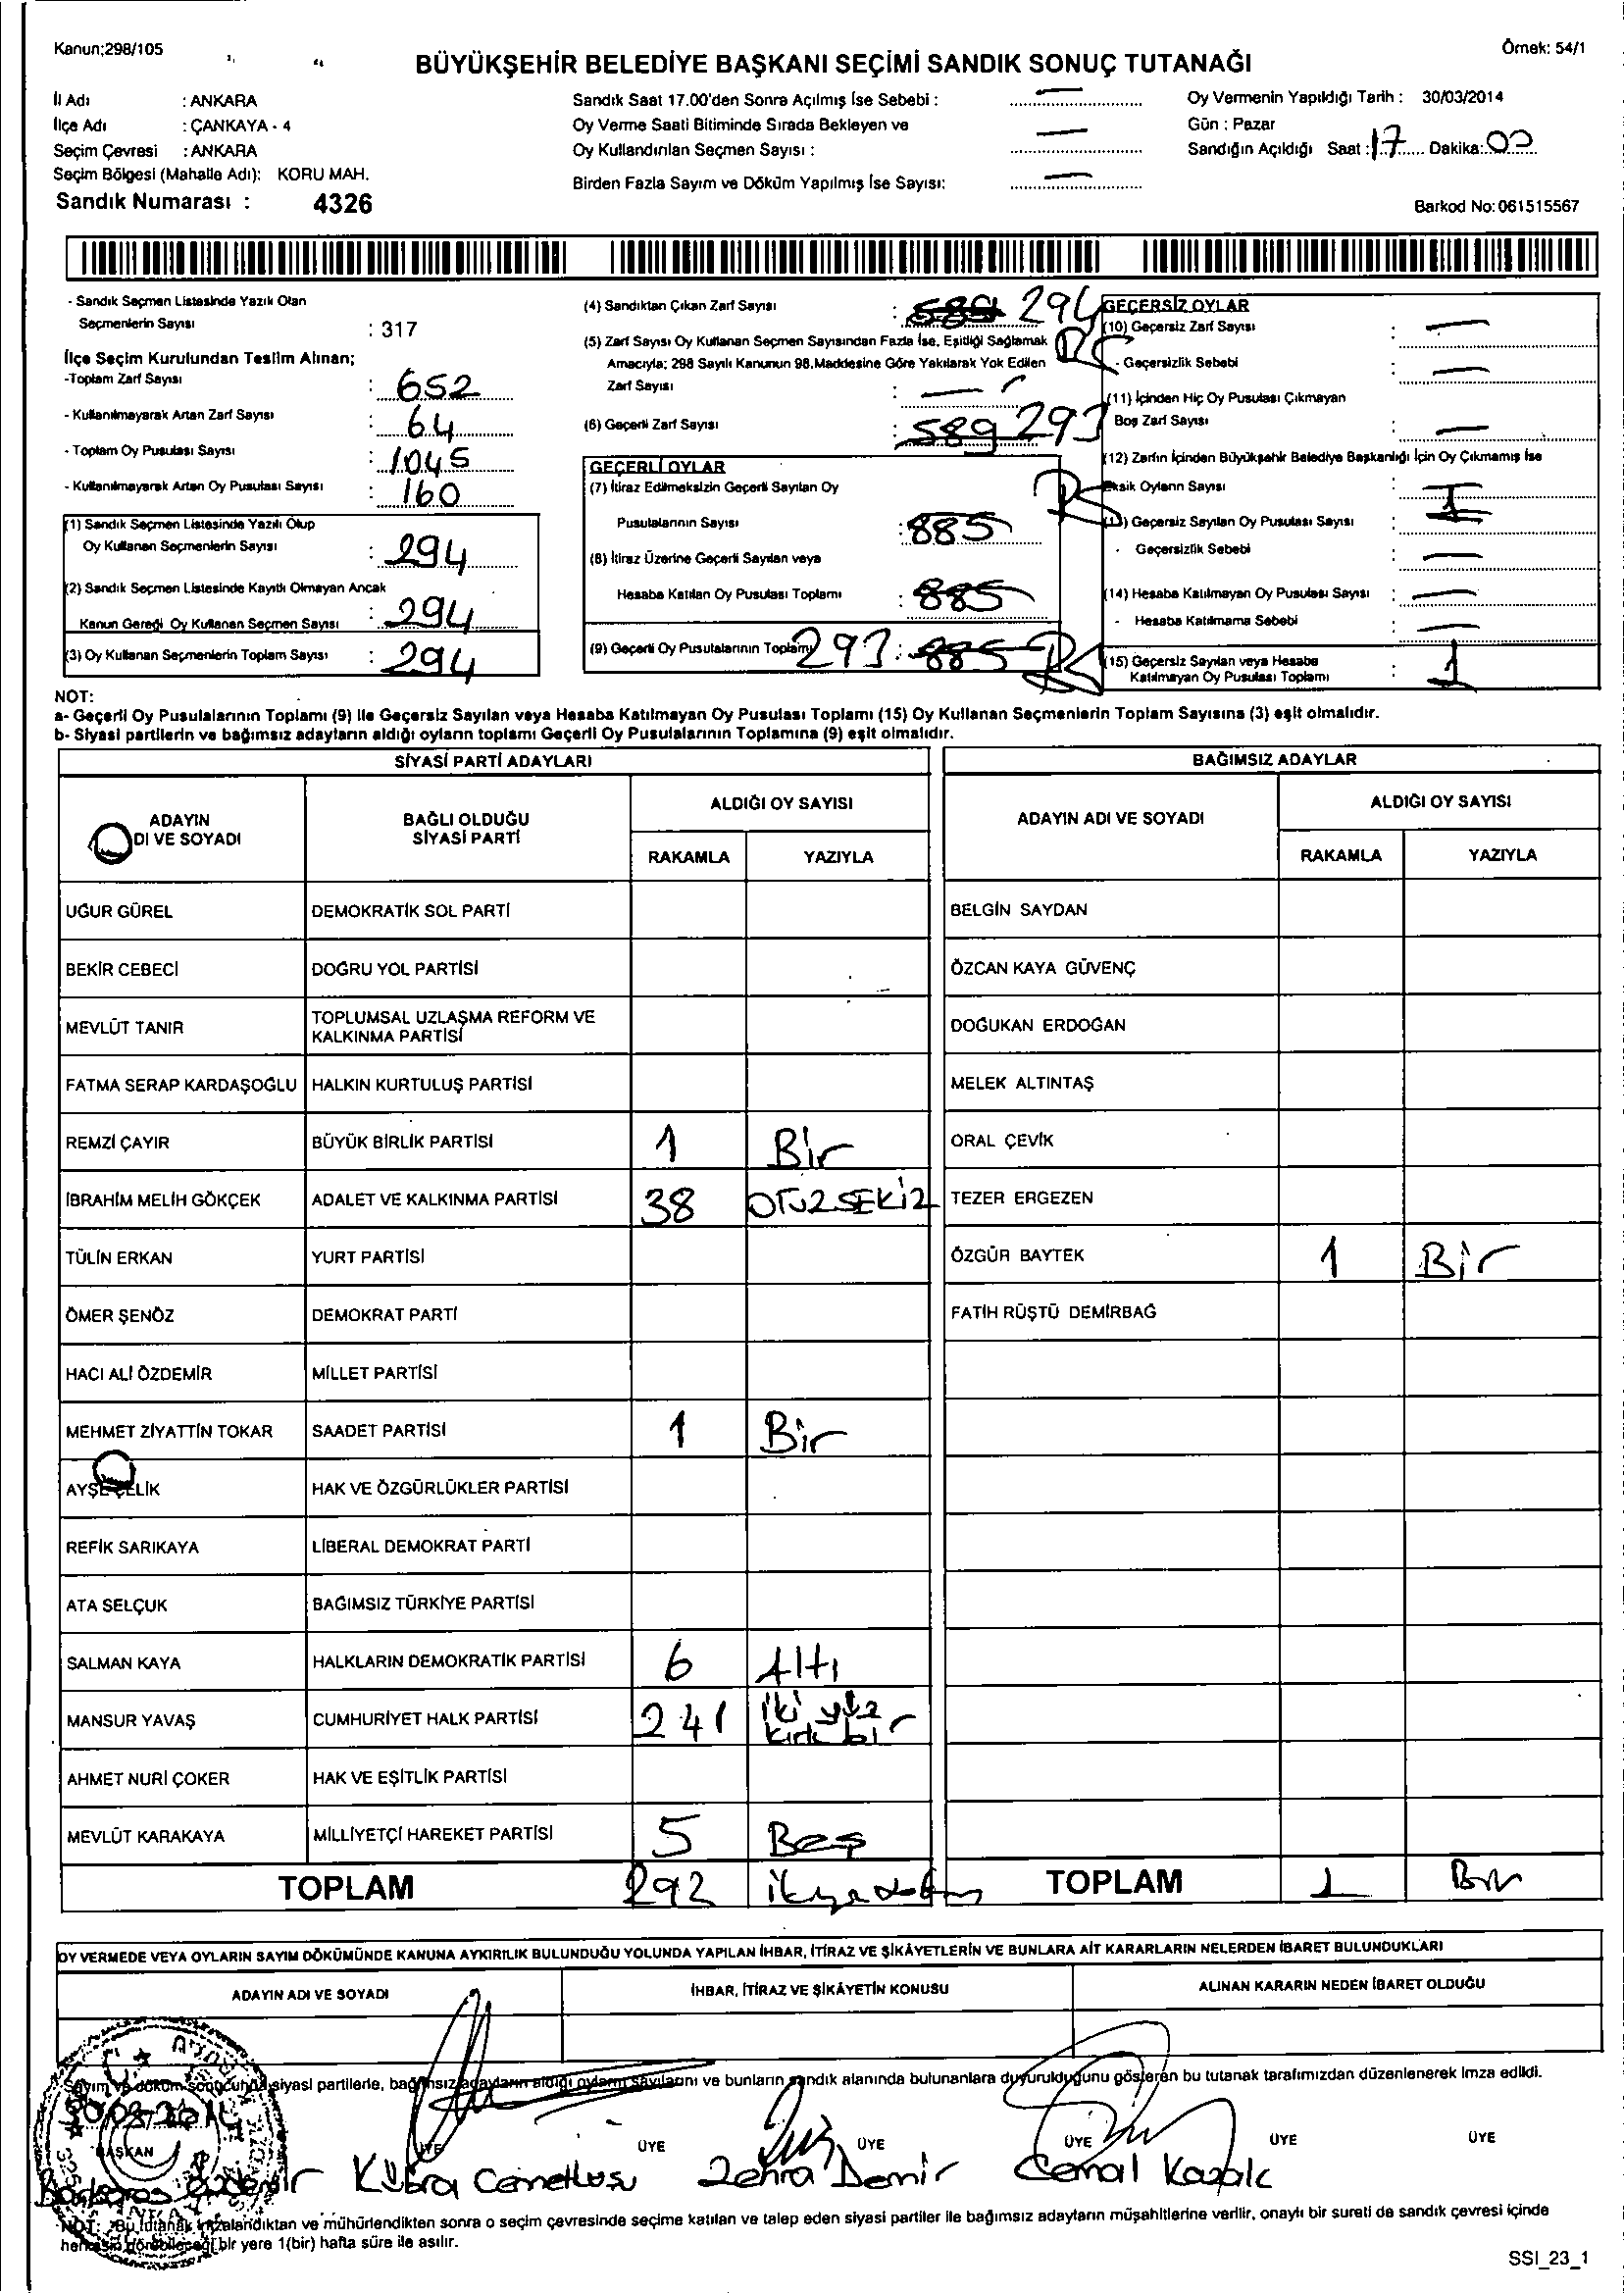 Kanun;298/105
Örnek: 54/1
BÜYÜKŞEHİR BELEDİYE BAŞKANI SEÇİMİ SANDIK SONUÇ TUTANAĞI
İl Adı : ANKARA
İlçe Adı : ÇANKAYA - 4
Seçim Çevresi : ANKARA
Seçim Bölgesi (Mahalle Adı): KORU MAH.
Sandık Numarası : 4326
Sandık Saat 17.00'den Sonra Açılmış İse Sebebi : —
Oy Verme Saati Bitiminde Sırada Bekleyen ve
Oy Kullandırılan Seçmen Sayısı : —
Birden Fazla Sayım ve Döküm Yapılmış İse Sayısı: —
Oy Vermenin Yapıldığı Tarih : 30/03/2014
Gün : Pazar
Sandığın Açıldığı Saat : 17 Dakika: 00
Barkod No: 061515567
- Sandık Seçmen Listesinde Yazılı Olan
Seçmenlerin Sayısı : 317
İlçe Seçim Kurulundan Teslim Alınan;
-Toplam Zarf Sayısı : 652
- Kullanılmayarak Artan Zarf Sayısı : 64
- Toplam Oy Pusulası Sayısı : 1045
- Kullanılmayarak Artan Oy Pusulası Sayısı : 160
(1) Sandık Seçmen Listesinde Yazılı Olup
Oy Kullanan Seçmenlerin Sayısı : 294
(2) Sandık Seçmen Listesinde Kayıtlı Olmayan Ancak
Kanun Gereği Oy Kullanan Seçmen Sayısı : 294
(3) Oy Kullanan Seçmenlerin Toplam Sayısı : 294
(4) Sandıktan Çıkan Zarf Sayısı : 589 294
(5) Zarf Sayısı Oy Kullanan Seçmen Sayısından Fazla İse, Eşitliği Sağlamak
Amacıyla; 298 Sayılı Kanunun 98.Maddesine Göre Yakılarak Yok Edilen
Zarf Sayısı : —
(6) Geçerli Zarf Sayısı : 589 293
GEÇERLİ OYLAR
(7) İtiraz Edilmeksizin Geçerli Sayılan Oy
Pusulalarının Sayısı : 885
(8) İtiraz Üzerine Geçerli Sayılan veya
Hesaba Katılan Oy Pusulası Toplamı : 885
(9) Geçerli Oy Pusulalarının Toplamı 293 : 885
GEÇERSİZ OYLAR
(10) Geçersiz Zarf Sayısı : —
- Geçersizlik Sebebi : —
(11) İçinden Hiç Oy Pusulası Çıkmayan
Boş Zarf Sayısı : —
(12) Zarfın İçinden Büyükşehir Belediye Başkanlığı İçin Oy Çıkmamış İse
Eksik Oyların Sayısı :
(13) Geçersiz Sayılan Oy Pusulası Sayısı :
- Geçersizlik Sebebi : —
(14) Hesaba Katılmayan Oy Pusulası Sayısı : —
- Hesaba Katılmama Sebebi : —
(15) Geçersiz Sayılan veya Hesaba
Katılmayan Oy Pusulası Toplamı : 1
NOT:
a- Geçerli Oy Pusulalarının Toplamı (9) ile Geçersiz Sayılan veya Hesaba Katılmayan Oy Pusulası Toplamı (15) Oy Kullanan Seçmenlerin Toplam Sayısına (3) eşit olmalıdır.
b- Siyasi partilerin ve bağımsız adayların aldığı oyların toplamı Geçerli Oy Pusulalarının Toplamına (9) eşit olmalıdır.
SİYASİ PARTİ ADAYLARI
BAĞIMSIZ ADAYLAR
ADAYIN
DI VE SOYADI
BAĞLI OLDUĞU
SİYASİ PARTİ
ALDIĞI OY SAYISI
RAKAMLA YAZIYLA
ADAYIN ADI VE SOYADI
ALDIĞI OY SAYISI
RAKAMLA YAZIYLA
UĞUR GÜREL DEMOKRATİK SOL PARTİ BELGİN SAYDAN
BEKİR CEBECİ DOĞRU YOL PARTİSİ ÖZCAN KAYA GÜVENÇ
MEVLÜT TANIR TOPLUMSAL UZLAŞMA REFORM VE
KALKINMA PARTİSİ DOĞUKAN ERDOĞAN
FATMA SERAP KARDAŞOĞLU HALKIN KURTULUŞ PARTİSİ MELEK ALTINTAŞ
REMZİ ÇAYIR BÜYÜK BİRLİK PARTİSİ 1 Bir ORAL ÇEVİK
İBRAHİM MELİH GÖKÇEK ADALET VE KALKINMA PARTİSİ 38 OTUZSEKİZ TEZER ERGEZEN
TÜLİN ERKAN YURT PARTİSİ ÖZGÜR BAYTEK 1 Bir
ÖMER ŞENÖZ DEMOKRAT PARTİ FATİH RÜŞTÜ DEMİRBAĞ
HACI ALİ ÖZDEMİR MİLLET PARTİSİ
MEHMET ZİYATTİN TOKAR SAADET PARTİSİ 1 Bir
AYŞE ÇELİK HAK VE ÖZGÜRLÜKLER PARTİSİ
REFİK SARIKAYA LİBERAL DEMOKRAT PARTİ
ATA SELÇUK BAĞIMSIZ TÜRKİYE PARTİSİ
SALMAN KAYA HALKLARIN DEMOKRATİK PARTİSİ 6 Altı
MANSUR YAVAŞ CUMHURİYET HALK PARTİSİ 241 iki yüz
kırk bir
AHMET NURİ ÇOKER HAK VE EŞİTLİK PARTİSİ
MEVLÜT KARAKAYA MİLLİYETÇİ HAREKET PARTİSİ 5 Beş
TOPLAM 292 TOPLAM 1 Bir
OY VERMEDE VEYA OYLARIN SAYIM DÖKÜMÜNDE KANUNA AYKIRILIK BULUNDUĞU YOLUNDA YAPILAN İHBAR, İTİRAZ VE ŞİKÂYETLERİN VE BUNLARA AİT KARARLARIN NELERDEN İBARET BULUNDUKLARI
ADAYIN ADI VE SOYADI İHBAR, İTİRAZ VE ŞİKÂYETİN KONUSU ALINAN KARARIN NEDEN İBARET OLDUĞU
Sayım ve döküm sonucunda siyasi partilerle, bağımsız adayların aldığı oyların sayılarını ve bunların sandık alanında bulunanlara duyurulduğunu gösteren bu tutanak tarafımızdan düzenlenerek imza edildi.
BAŞKAN ÜYE ÜYE ÜYE ÜYE ÜYE ÜYE
Kübra Zehra Demir Cemal
NOT: Bu tutanak imzalandıktan ve mühürlendikten sonra o seçim çevresinde seçime katılan ve talep eden siyasi partiler ile bağımsız adayların müşahitlerine verilir, onaylı bir sureti de sandık çevresi içinde
herkesin görebileceği bir yere 1(bir) hafta süre ile asılır.
SSI_23_1